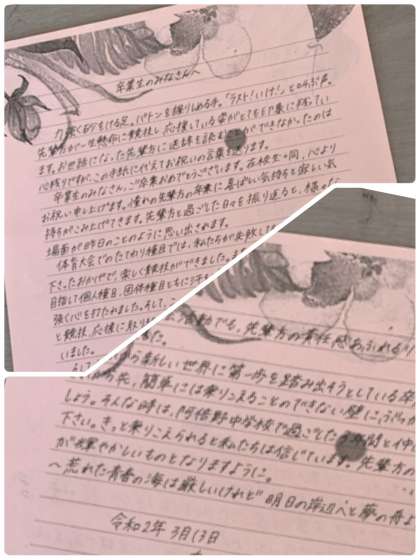 卒業生のみなさんへ
力強く砂をける足、バトンを握りしめる手。「ラスト！いけ！」とひびく声。
先輩方が一生懸命に競技し応援している姿がとても印象に残ってい
ます。お世話になった先輩方に送辞を読む ができなかったのは
心残りですが、この手紙に代えてお祝いの言葉を贈ります。
卒業生のみなさん、ご卒業おめでとうございます。在校生一同、心より
お祝い申し上げます。憧れの先輩方の卒業に喜ばしい気持ちと寂しい気
持ちがこみ上げてきます。先輩方と過ごした日々を振り返ると、様々な
場面が昨日のことのように思い出されます。
体育大会でのたてわり種目では、私たちが失敗し
下さったおかげで、楽しく競技ができました。
目指して個人種目、団体種目ともに
強く心を打たれました。そして、
と競技、応援に
いました。
活動でも、先輩方の責任感あふれる
新しい世界に第一歩を踏み出そうとしている卒
の先、簡単には乗りこえることのできない壁に、ぶつか
しょう。そんな時は、阿倍野中学校で過ごした 年間と仲
下さい。きっと乗りこえられると私たちは信じています。先輩方
が輝やかしいものとなりますように。
へ荒れた青春の海は厳しいけれど 明日の岸辺へと 夢の舟よ
令和2年3月13日